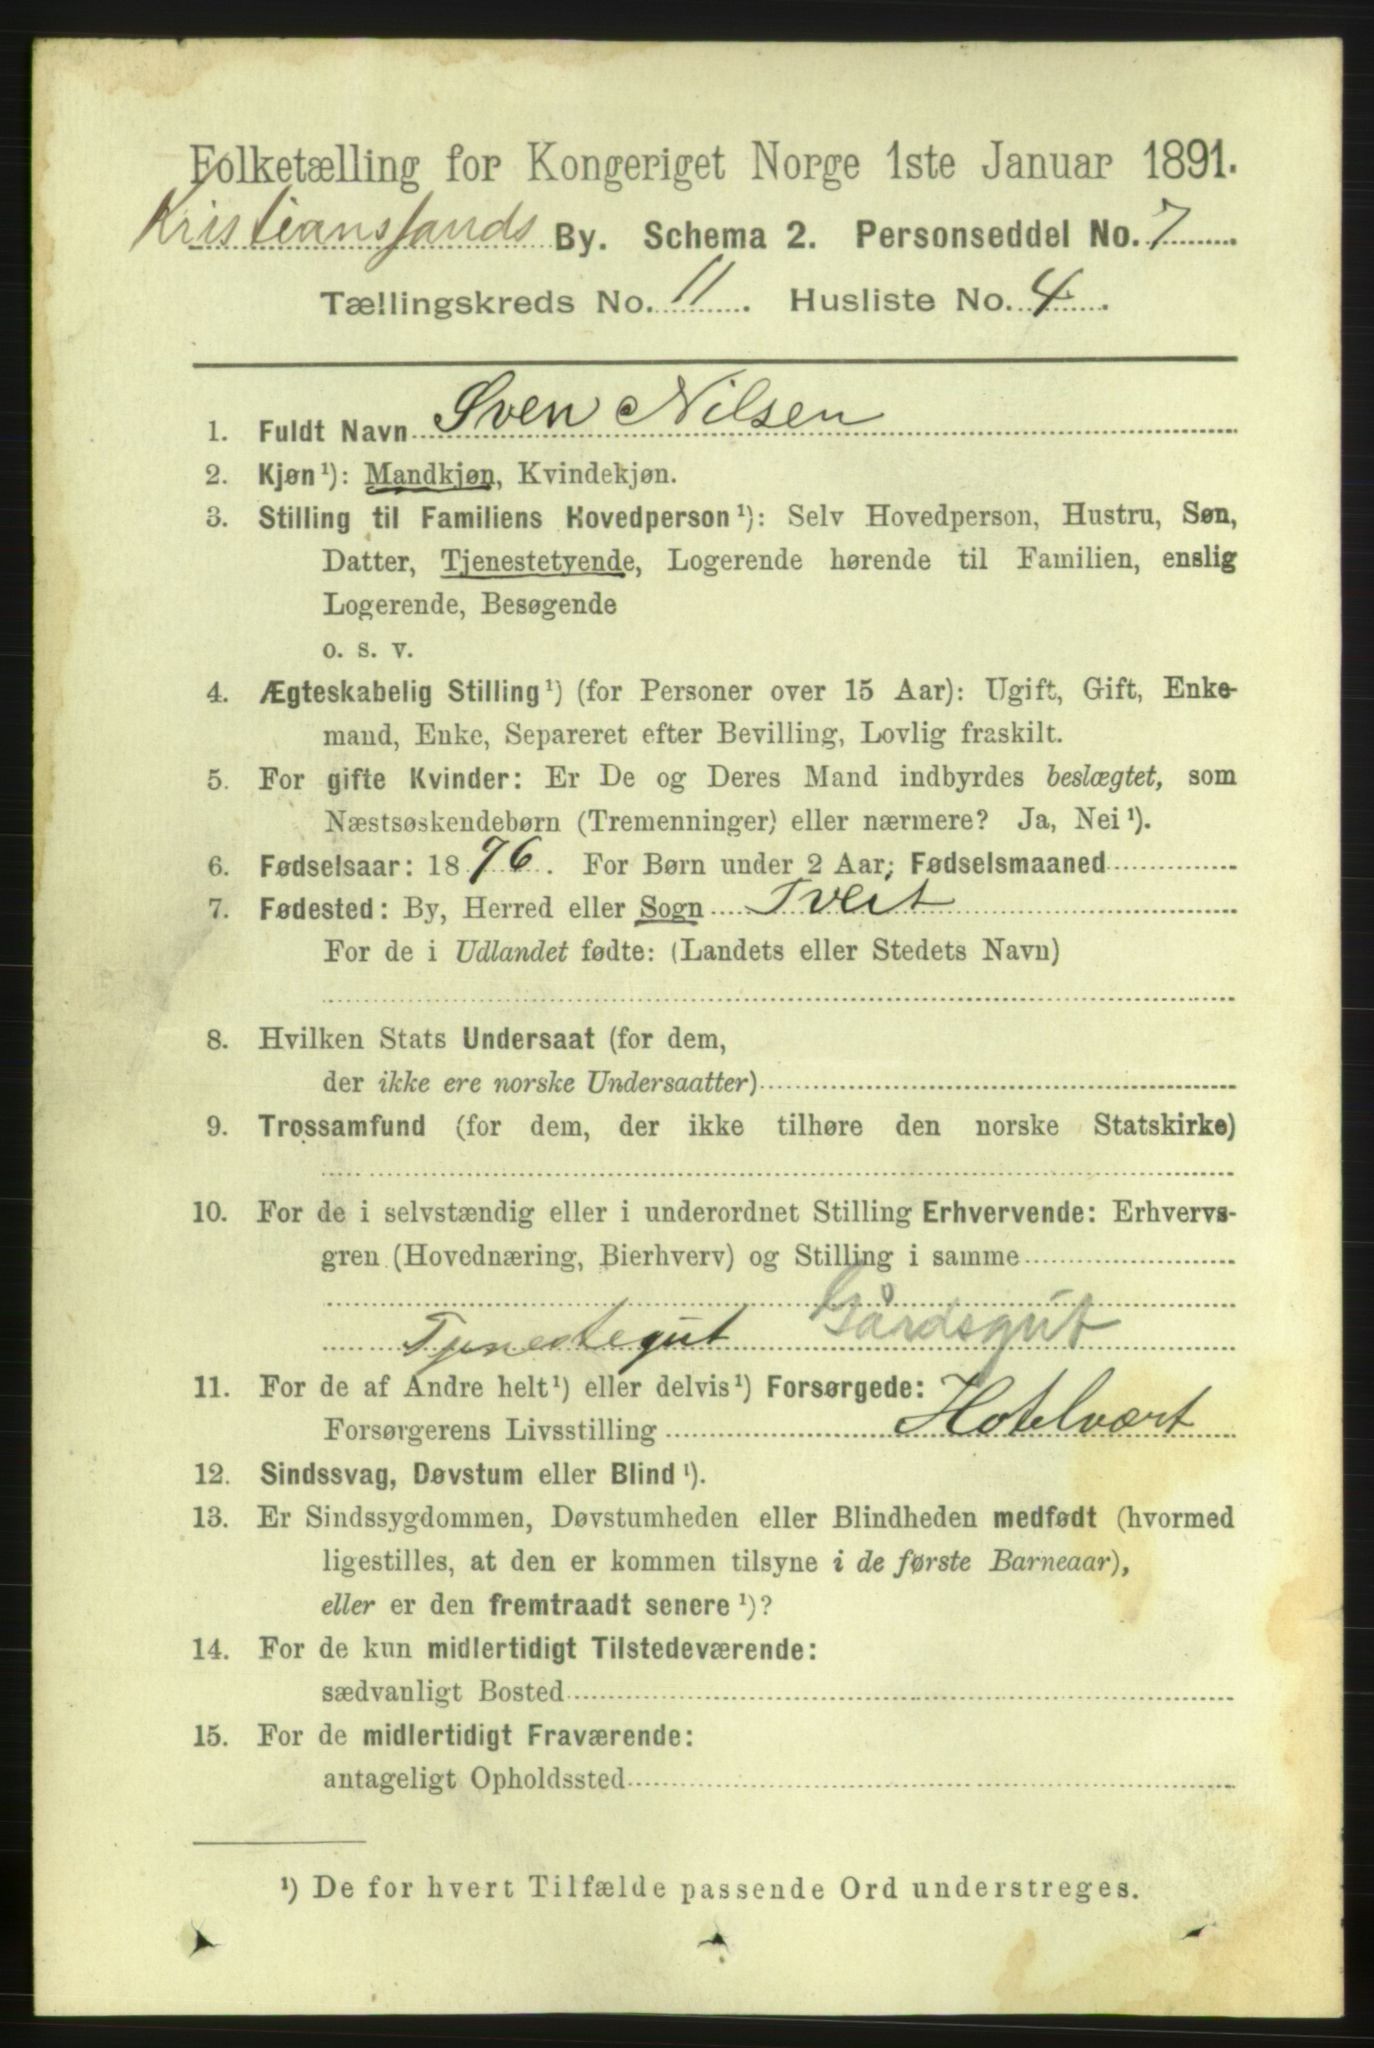 Folketælling for Kongeriget Norge 1ste Januar 1891.
Kristianssands By. Schema 2. Personseddel No. 7
Tællingskreds No. 11. Husliste No. 4.
1. Fuldt Navn Sven Nilsen
2. Kjøn¹): Mandkjøn, Kvindekjøn.
3. Stilling til Familiens Hovedperson¹): Selv Hovedperson, Hustru, Søn,
Datter, Tjenestetyende, Logerende hørende til Familien, enslig
Logerende, Besøgende
o. s. v.
4. Ægteskabelig Stilling¹) (for Personer over 15 Aar): Ugift, Gift, Enke-
mand, Enke, Separeret efter Bevilling, Lovlig fraskilt.
5. For gifte Kvinder: Er De og Deres Mand indbyrdes beslægtet, som
Næstsøskendebørn (Tremenninger) eller nærmere? Ja, Nei¹).
6. Fødselsaar: 1876. For Børn under 2 Aar: Fødselsmaaned
7. Fødested: By, Herred eller Sogn Tveit
For de i Udlandet fødte: (Landets eller Stedets Navn)
8. Hvilken Stats Undersaat (for dem,
der ikke ere norske Undersaatter)
9. Trossamfund (for dem, der ikke tilhøre den norske Statskirke)
10. For de i selvstændig eller i underordnet Stilling Erhvervende: Erhvervs-
gren (Hovednæring, Bierhverv) og Stilling i samme
Tjenestegut Gårdsgut
11. For de af Andre helt¹) eller delvis¹) Forsørgede:
Forsørgerens Livsstilling Hotelvært
12. Sindssvag, Døvstum eller Blind¹).
13. Er Sindssygdommen, Døvstumheden eller Blindheden medfødt (hvormed
ligestilles, at den er kommen tilsyne i de første Barneaar),
eller er den fremtraadt senere¹)?
14. For de kun midlertidigt Tilstedeværende:
sædvanligt Bosted
15. For de midlertidigt Fraværende:
antageligt Opholdssted
¹) De for hvert Tilfælde passende Ord understreges.